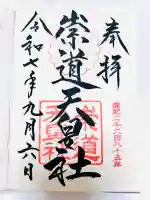 奉拝
皇紀二千六百八十五年
崇道天皇社
崇道天皇社
令和七年九月六日